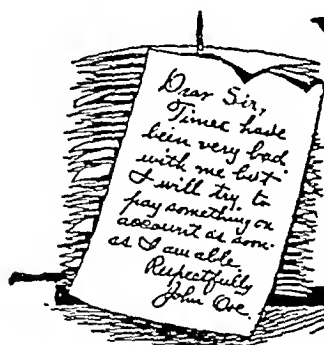 Dear Sir,
Times have
been very bad
with me but
I will try to
pay something on
account as soon
as I am able.
Respectfully
John Ove.